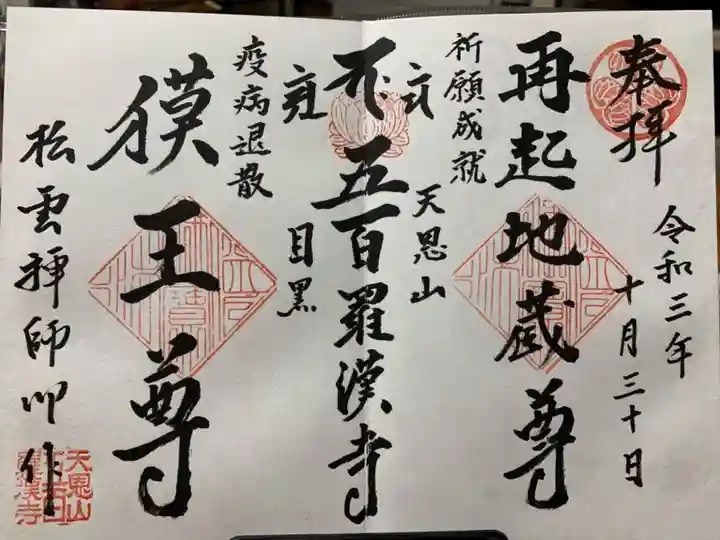 奉拝
令和三年
十月三十日
再起地蔵尊
祈願成就
天恩山
五百羅漢寺
目黒
獏王尊
疫病退散
松雲
作
天恩山
羅漢寺